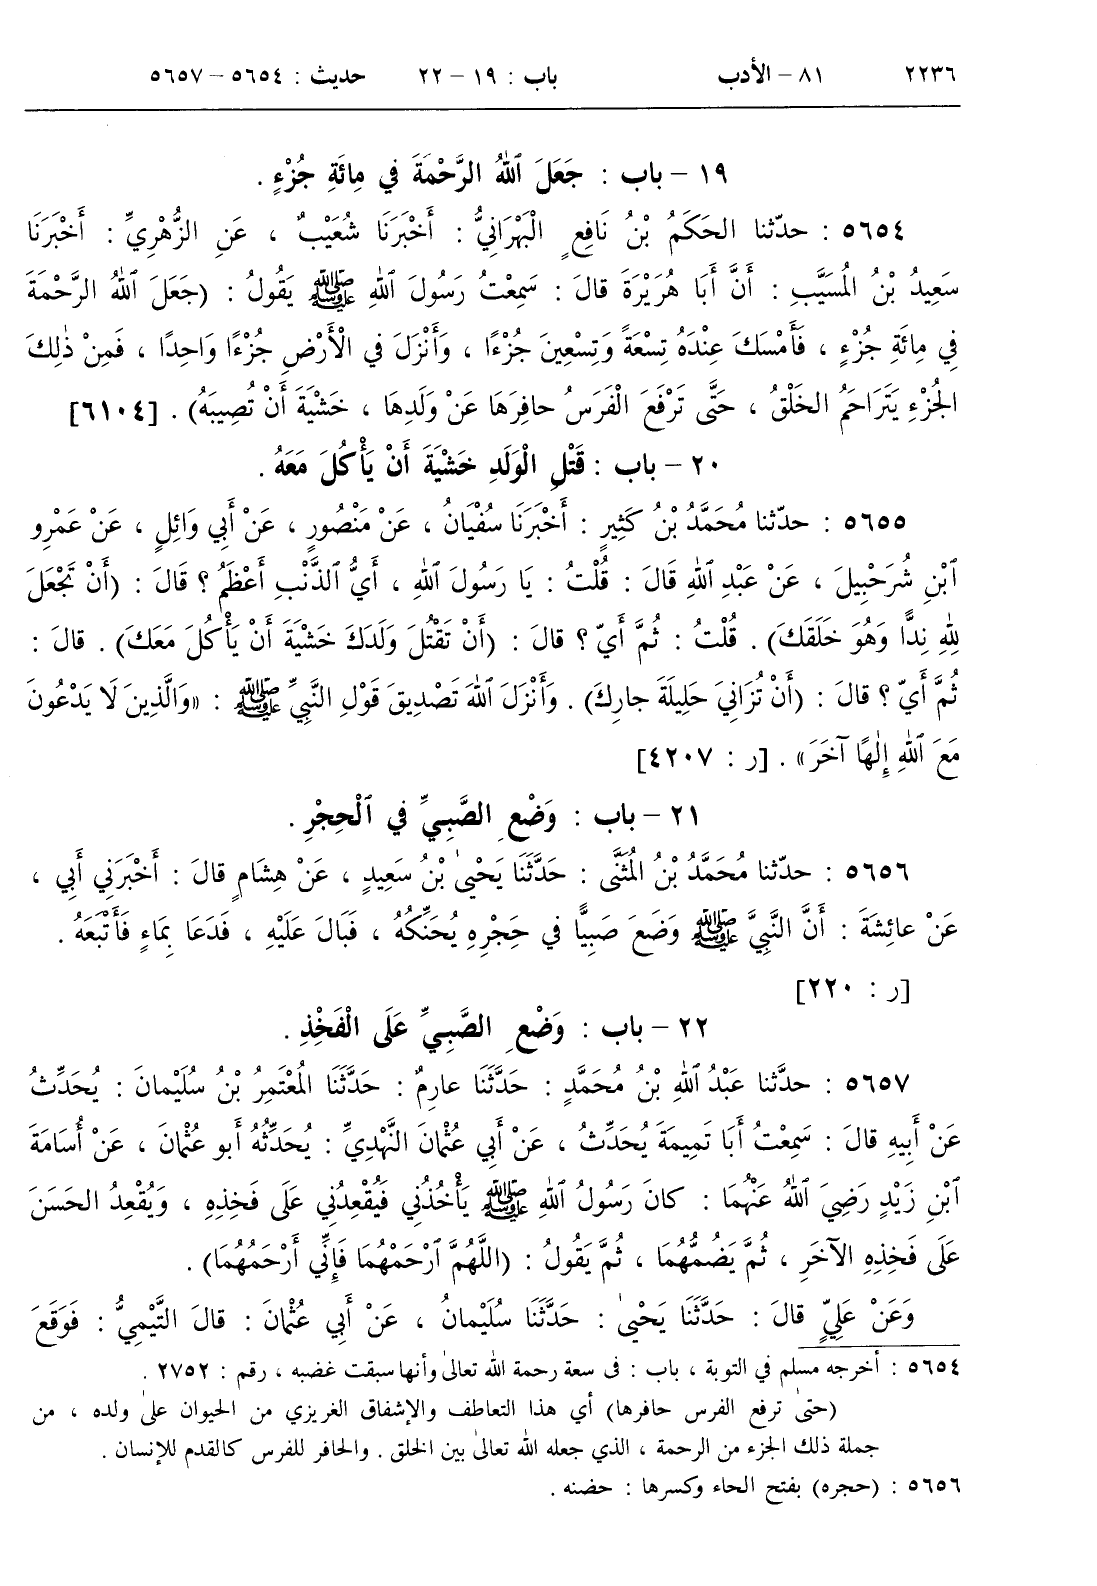 ٢٢٣٦ ٨١ – الأدب باب : ١٩ – ٢٢ حديث : ٥٦٥٤ – ٥٦٥٧
١٩ – باب : جَعَلَ ٱللهُ الرَّحْمَةَ في مِائَةِ جُزْءٍ .
٥٦٥٤ : حدّثنا الحَكَمُ بْنُ نَافِعٍ الْبَهْرَانِيُّ : أَخْبَرَنَا شُعَيْبٌ ، عَنِ الزُّهْرِيِّ : أَخْبَرَنَا
سَعِيدُ بْنُ المُسَيَّبِ : أَنَّ أَبَا هُرَيْرَةَ قالَ : سَمِعْتُ رَسُولَ ٱللهِ ﷺ يَقُولُ : (جَعَلَ ٱللهُ الرَّحْمَةَ
في مِائَةِ جُزْءٍ ، فَأَمْسَكَ عِنْدَهُ تِسْعَةً وَتِسْعِينَ جُزْءًا ، وَأَنْزَلَ في الْأَرْضِ جُزْءًا وَاحِدًا ، فَمِنْ ذٰلِكَ
الجُزْءِ يَتَرَاحَمُ الخَلْقُ ، حَتَّى تَرْفَعَ الْفَرَسُ حافِرَهَا عَنْ وَلَدِهَا ، خَشْيَةَ أَنْ تُصِيبَهُ) . [٦١٠٤]
٢٠ – باب : قَتْلِ الْوَلَدِ خَشْيَةَ أَنْ يَأْكُلَ مَعَهُ .
٥٦٥٥ : حدّثنا مُحَمَّدُ بْنُ كَثِيرٍ : أَخْبَرَنَا سُفْيَانُ ، عَنْ مَنْصُورٍ ، عَنْ أَبِي وَائِلٍ ، عَنْ عَمْرِو
ٱبْنِ شُرَحْبِيلَ ، عَنْ عَبْدِ ٱللهِ قَالَ : قُلْتُ : يَا رَسُولَ ٱللهِ ، أَيُّ الذَّنْبِ أَعْظَمُ ؟ قَالَ : (أَنْ تَجْعَلَ
لِلهِ نِدًّا وَهُوَ خَلَقَكَ) . قُلْتُ : ثُمَّ أَيّ ؟ قالَ : (أَنْ تَقْتُلَ وَلَدَكَ خَشْيَةَ أَنْ يَأْكُلَ مَعَكَ) . قالَ :
ثُمَّ أَيّ ؟ قالَ : (أَنْ تُزَانِيَ حَلِيلَةَ جارِكَ) . وَأَنْزَلَ ٱللهُ تَصْدِيقَ قَوْلِ النَّبِيِّ ﷺ : «وَالَّذِينَ لَا يَدْعُونَ
مَعَ ٱللهِ إِلٰهًا آخَرَ» . [ر : ٤٢٠٧]
٢١ – باب : وَضْعِ الصَّبِيِّ في ٱلْحِجْرِ .
٥٦٥٦ : حدّثنا مُحَمَّدُ بْنُ المُثَنَّى : حَدَّثَنَا يَحْيىٰ بْنُ سَعِيدٍ ، عَنْ هِشَامٍ قالَ : أَخْبَرَنِي أَبِي ،
عَنْ عائِشَةَ : أَنَّ النَّبِيَّ ﷺ وَضَعَ صَبِيًّا في حِجْرِهِ يُحَنِّكُهُ ، فَبَالَ عَلَيْهِ ، فَدَعَا بِمَاءٍ فَأَتْبَعَهُ .
[ر : ٢٢٠]
٢٢ – باب : وَضْعِ الصَّبِيِّ عَلَى الْفَخِذِ .
٥٦٥٧ : حدَّثنا عَبْدُ ٱللهِ بْنُ مُحَمَّدٍ : حَدَّثَنَا عارِمٌ : حَدَّثَنَا المُعْتَمِرُ بْنُ سُلَيْمانَ : يُحَدِّثُ
عَنْ أَبِيهِ قالَ : سَمِعْتُ أَبَا تَمِيمَةَ يُحَدِّثُ ، عَنْ أَبِي عُثْمانَ النَّهْدِيِّ : يُحَدِّثُهُ أَبو عُثْمانَ ، عَنْ أُسَامَةَ
ٱبْنِ زَيْدٍ رَضِيَ ٱللهُ عَنْهُمَا : كانَ رَسُولُ ٱللهِ ﷺ يَأْخُذُنِي فَيُقْعِدُنِي عَلَى فَخِذِهِ ، وَيُقْعِدُ الحَسَنَ
عَلَى فَخِذِهِ الآخَرِ ، ثُمَّ يَضُمُّهُمَا ، ثُمَّ يَقُولُ : (اللَّهُمَّ ٱرْحَمْهُمَا فَإِنِّي أَرْحَمُهُمَا) .
وَعَنْ عَلِيٍّ قالَ : حَدَّثَنَا يَحْيىٰ : حَدَّثَنَا سُلَيْمانُ ، عَنْ أَبِي عُثْمانَ : قالَ التَّيْمِيُّ : فَوَقَعَ
٥٦٥٤ : أخرجه مسلم في التوبة ، باب : فى سعة رحمة الله تعالىٰ وأنها سبقت غضبه ، رقم : ٢٧٥٢ .
(حتىٰ ترفع الفرس حافرها) أي هذا التعاطف والإشفاق الغريزي من الحيوان علىٰ ولده ، من
جملة ذلك الجزء من الرحمة ، الذي جعله الله تعالىٰ بين الخلق . والحافر للفرس كالقدم للإنسان .
٥٦٥٦ : (حجره) بفتح الحاء وكسرها : حضنه .